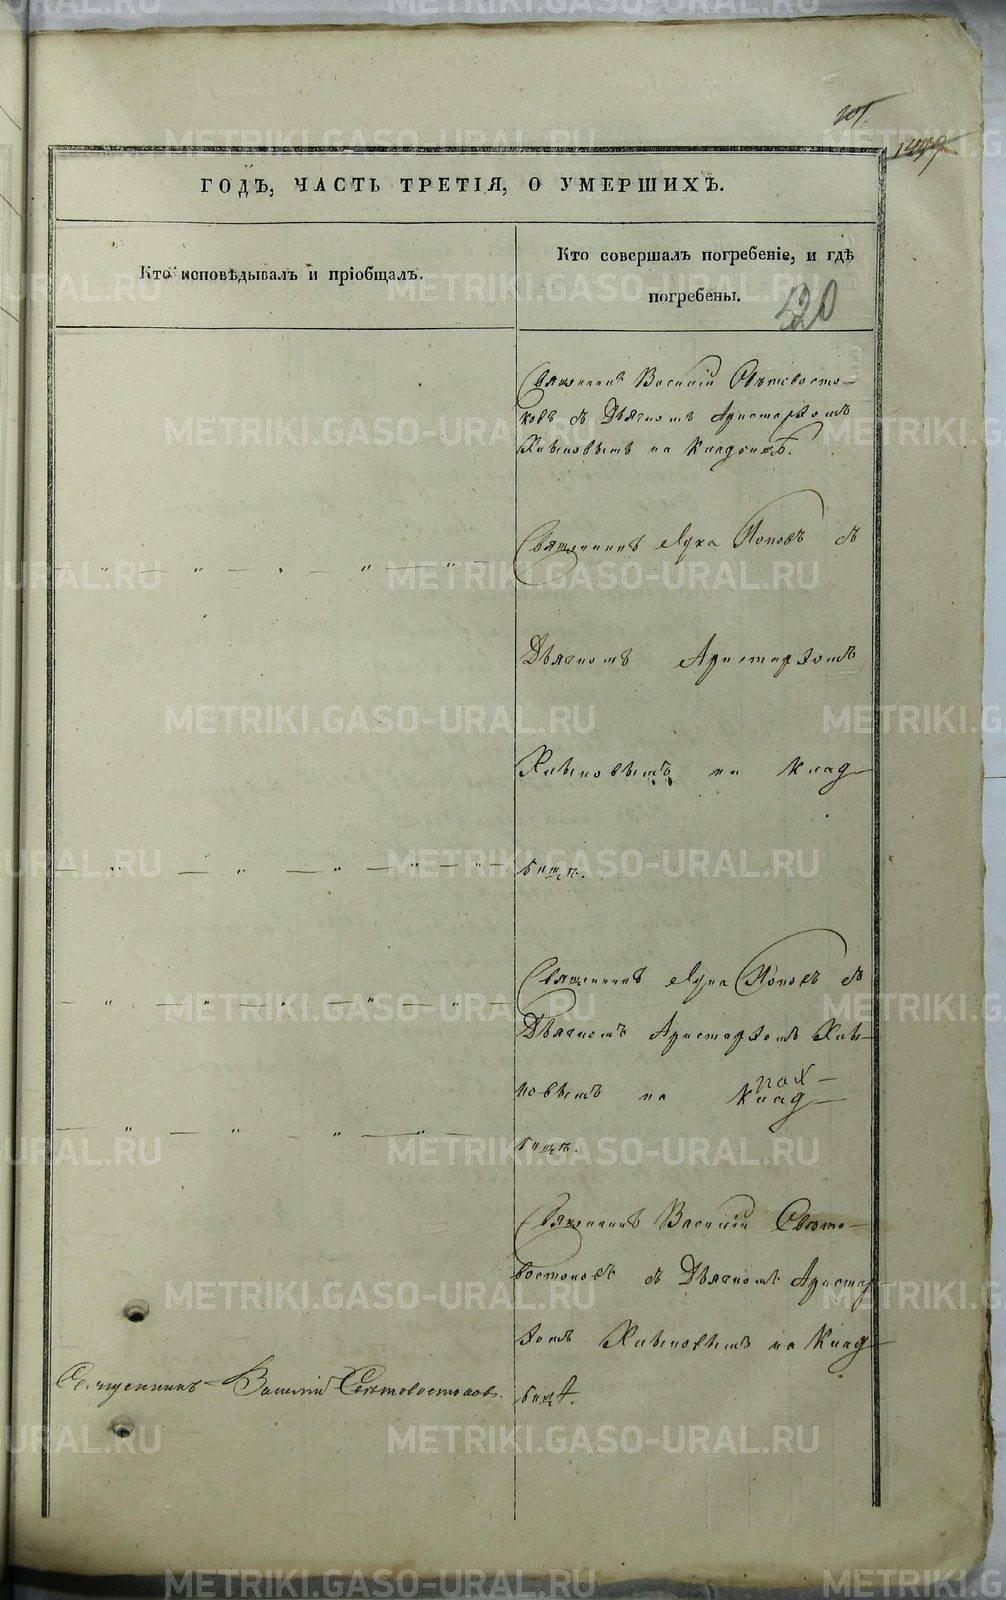 ГОДЪ, ЧАСТЬ ТРЕТІЯ, О УМЕРШИХЪ.
Кто исповѣдывалъ и пріобщалъ.
Кто совершалъ погребеніе, и гдѣ
погребены.
520
Священникъ Василій Свѣтовосто-
ковъ съ Дьячкомъ Аристархомъ
Хлыновымъ на Кладбищѣ.
Священникъ Лука Поповъ съ
Дьячкомъ Аристархомъ
Хлыновымъ на Клад-
бищѣ.
Священникъ Лука Поповъ съ
Дьячкомъ Аристархомъ Хлы-
новымъ на Клад-
бищѣ.
Священникъ Василій Свѣто-
востоковъ съ Дьячкомъ Аристар-
хомъ Хлыновымъ на Клад-
бищѣ.
Священникъ Василій Свѣтовостоковъ.
METRIKI.GASO-URAL.RU